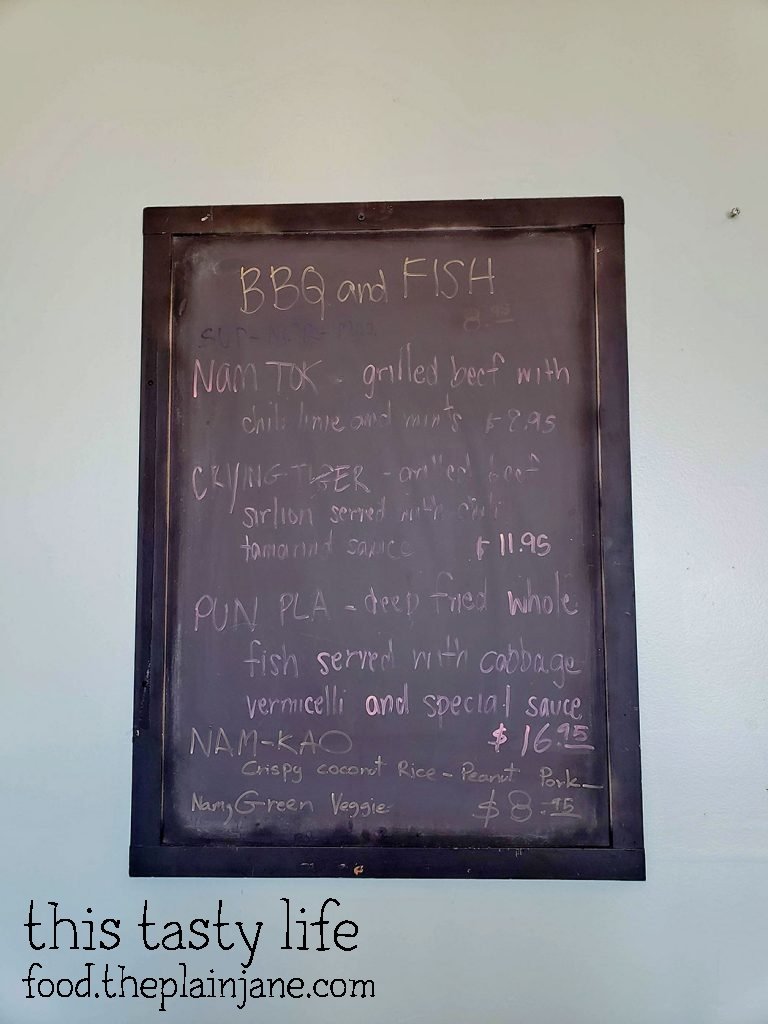 BBQ and FISH
8.95
NAM TOK - grilled beef with
chili lime and mints $8.95
CRYING TIGER - grilled beef
sirlion served with chili
tamarind sauce $11.95
PUN PLA - deep fried whole
fish served with cabbage
vermicelli and special sauce
NAM-KAO $16.95
Crispy coconut Rice - Peanut Pork -
Green Veggie $8.95
this tasty life
food.theplainjane.com